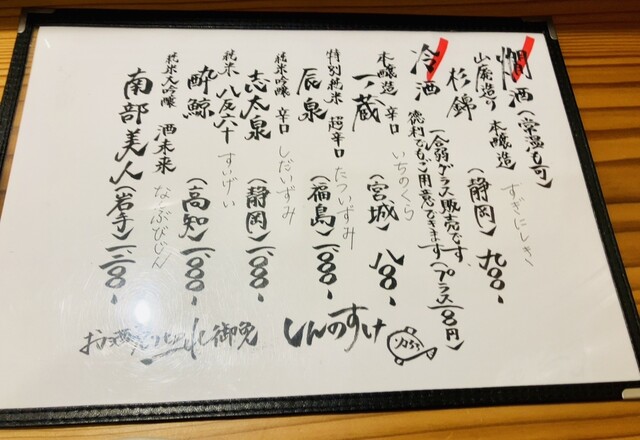 燗酒（常温も可）
山廃造り 本醸造
杉錦（静岡）九〇〇-
すぎにしき
冷酒
一合弱グラス販売です
徳利でもご用意できます（プラス一八〇円）
本醸造 辛口
一ノ蔵（宮城）八〇〇-
いちのくら
特別純米 超辛口
辰泉（福島）一、〇〇〇-
たついずみ
純米吟醸 辛口
志太泉（静岡）一、〇〇〇-
しだいずみ
純米 八反六十
酔鯨（高知）一、〇〇〇-
すいげい
純米大吟醸 酒未来
南部美人（岩手）一、二〇〇-
なんぶびじん
お酒 切れ御免
しんのすけ